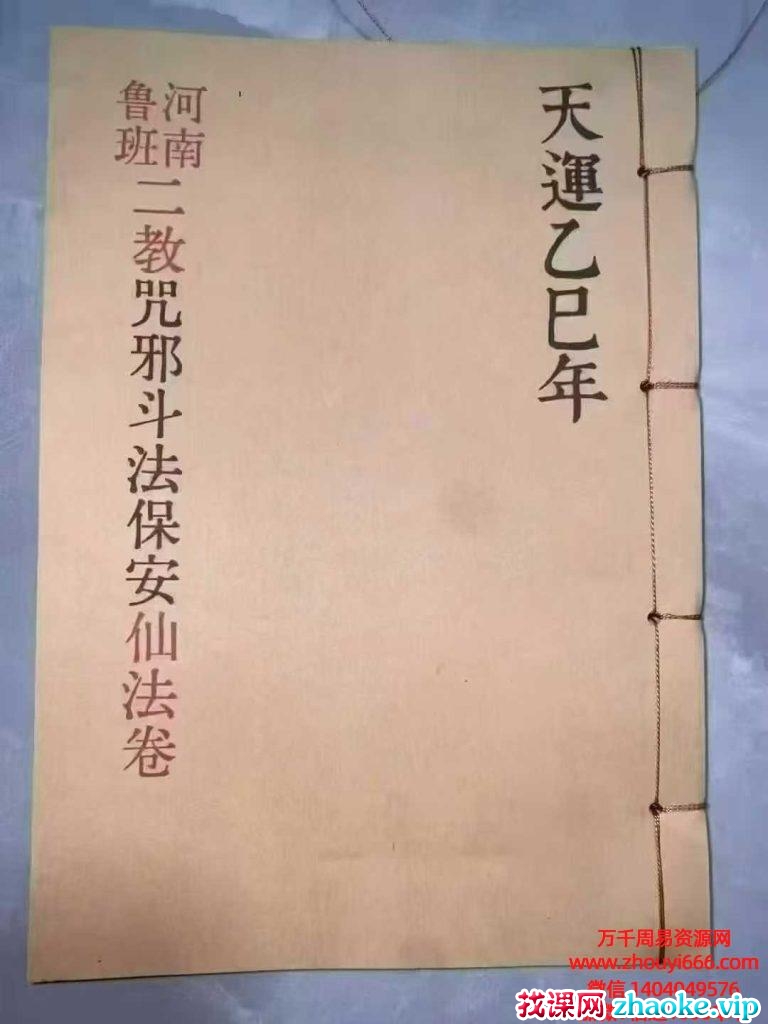 天運乙巳年
河南
鲁班
二教咒邪斗法保安仙法卷
万千周易资源网
www.zhouyi666.com
微信 1404049576
找课网zhaoke.vip